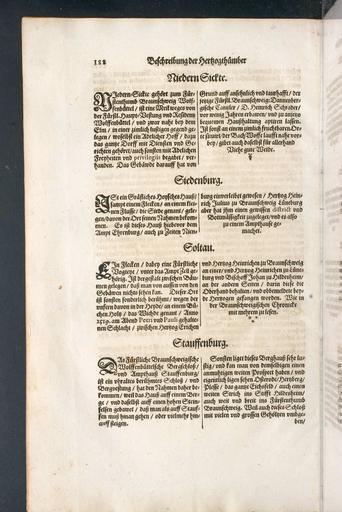 188 Beschreibung der Hertzogthümber
Nieder Sickte.
Nieder-Sickte gehört zum Für-
stenthumb Braunschweig Wolf-
fenbüttel / ist eine Meilweges von
der Fürstl. Haupt-Vestung und Residentz
Wolffenbüttel / und zwar nahe bey dem
Elm / in einer zimlich lustigen gegend ge-
legen / woselbst ein Adelicher Hoff / dazu
das gantze Dorff mit Diensten und Ge-
richten gehöret / auch sonsten mit Adelichen
Freyheiten und privilegiis begabet / ver-
handen. Das Gebäude darauff hat von
Grund auff ansehnlich und
jetzige Fürstl. Braunschweig: Dannenber-
gische Cantzler / D. Heinrich Schrader /
vor wenig Jahren erbawen / und zu unter
bequemen Haußhaltung
Ist sonst an einem zimlich fruchtbaren Or-
te / zumal der Bach Wasse laufft nahe vor-
bey / gibet auch daselbst für allerhand
Viehe gute Weide.
Siedenburg.
Ist ein Gräfliches Hoyisches Hauß /
sampt einem Flecken / an einem klei-
nen Flusse / die Siede genant / gele-
gen / davon der Ort seinen Nahmen bekom-
men. Es ist dieses Hauß hiebevor dem
Ampt Ehrenburg / auch zu Zeiten Nien-
burg einverleibet gewesen / Hertzog Hein-
rich Julius zu Braunschweig Lüneburg
aber hat ihm einen gewissen district und
Bottmässigkeit zugeleget / und es also
zu einem Ampthause ge-
machet.
Soltau.
Ein Flecken / dabey eine Fürstliche
Vogtey / unter das Ampt Zell ge-
hörig. Ist dergestalt zwischen Bäu-
men gelegen / daß man von aussen von den
Gebäwen nichts sehen kan. Dieser Ort
ist sonsten sonderlich berühmt / wegen der
unfern davon in der Heyde / an einem Bü-
chen Holtz / das Wiehholtz genant / Anno
1519. am Abend Petri und Pauli gehalte-
nen Schlacht / zwischen Hertzog Erichen
und Hertzog Heinrichen zu Braunschweig
an einer / und Hertzog Heinrichen zu Lüne-
burg und Bischoff Johan zu Hildesheim
an der andern Seiten / darin diese die
Oberhand behalten / und obbemeldete bey-
de Hertzogen gefangen worden. Wie in
der Braunschweigischen Chronicke
mit mehrem zu lesen.
Stauffenburg.
Das Fürstliche Braunschweigische
Wolffenbüttelsche Bergschloß /
und Ampthauß Stauffenburg /
ist ein uhraltes berühmtes Schloß / und
Bergvestung / hat den Nahmen daher be-
kommen / weil das Hauß auff einem Ber-
ge / und daselbst auff einen hohen Stein-
felsen gebawet / daß man als auff Stauf-
fen muß hinan gehen / oder vielmehr hin-
auff steigen.
Sonsten liget dieses Berghauß sehr lu-
stig / und kan man von demselbigen einen
anmuhtigen weiten Prospect haben / und
eigentlich ligen sehen Osterode / Hertzberg /
Plesse / das gantze Eichsfeld / auch einen
weiten Strich ins Stifft Hildesheim /
auch weit und breit ins Fürstenthumb
Braunschweig. Weil auch dieses Schloß
mit vielen und grossen Gehöltzen umbge-
ben /